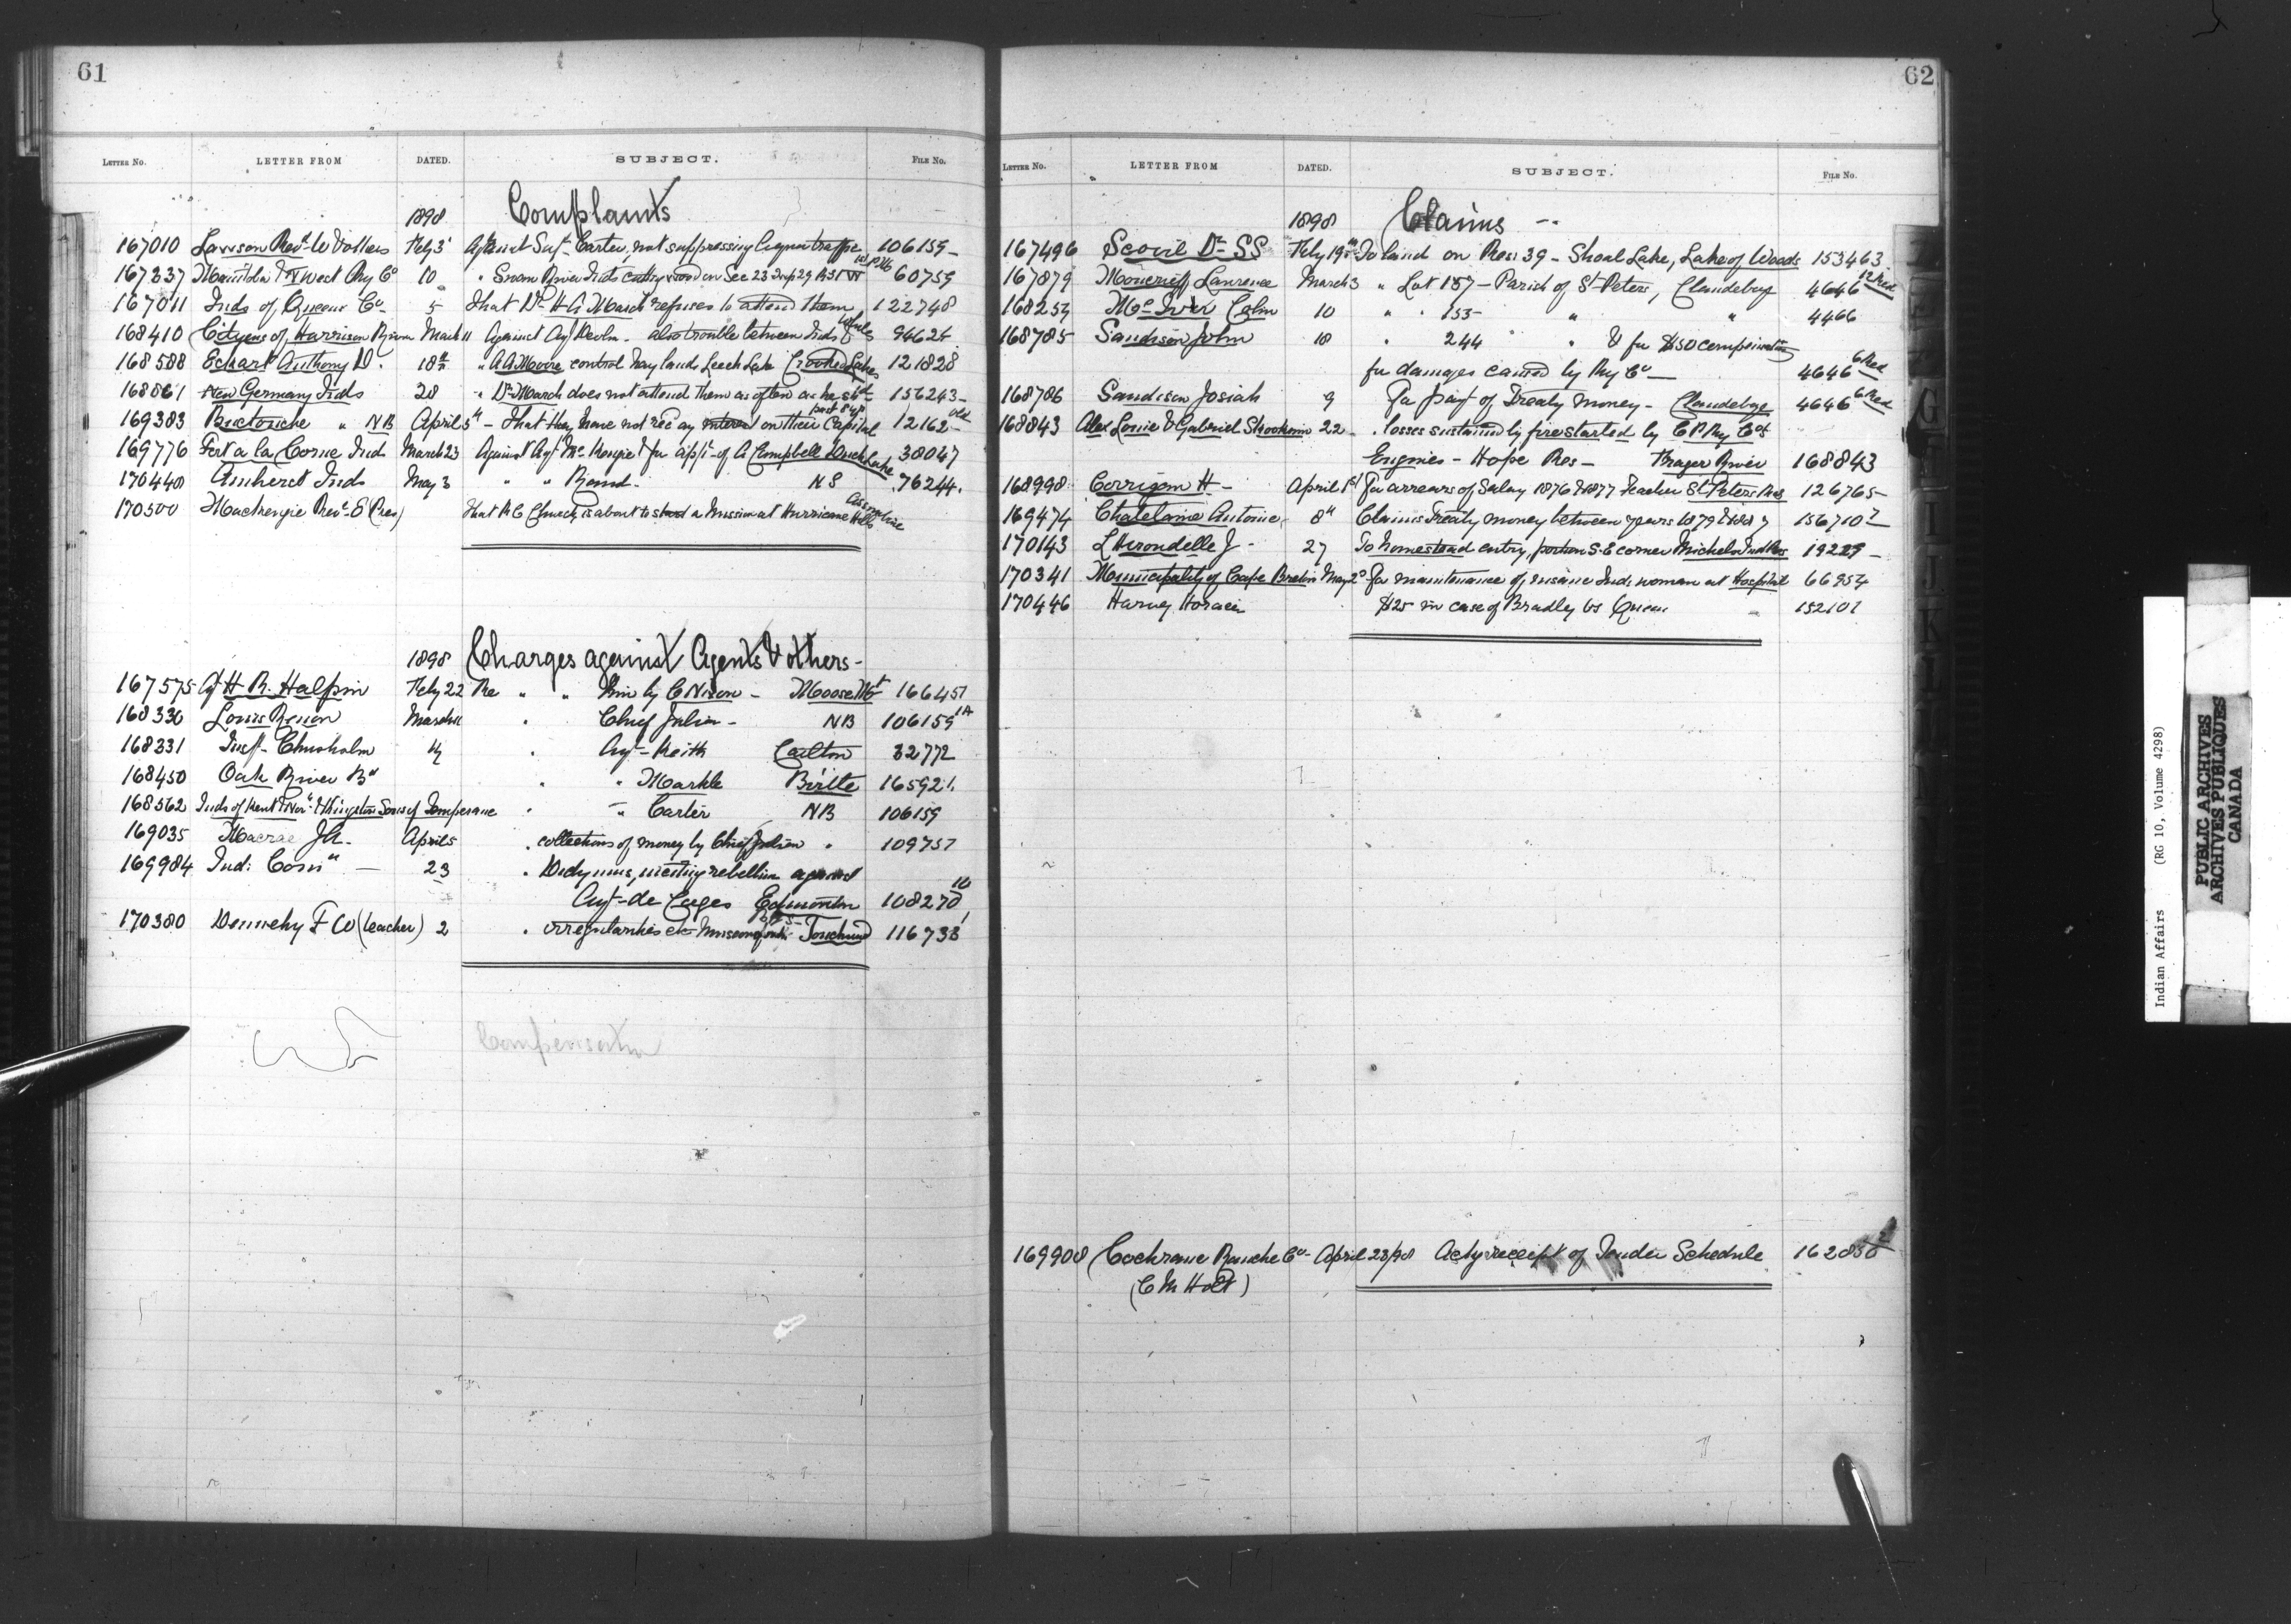 61
LETTER No. LETTER FROM DATED. SUBJECT. FILE No.
1898 Complaints
167010 Lawson Revd W & others Feby 3 Against Supt Carter, not suppressing liquor traffic 106159
167337 Manitoba & N West Ry Co 10 " Swan River Inds cutting wood on Sec 23 Twp 29 R 31 W 1st P.M. 60759
167011 Inds of Queens Co 5 That Dr H A March refuses to attend them 122748
168410 Citizens of Harrison River March 11 Against Agt Devlin. also trouble between Inds & whites 94624
168588 Eckart Anthony D. 18th " A A Moore control hay lands Leech Lake Crooked Lakes 121828
168861 New Germany Inds 28 " Dr March does not attend them as often as he shd 156243
169383 Buctouche " NB April 5th - That they have not recd any interest on their Capital past 8 yrs 12162 Old
169776 Fort a la Corne Inds March 23 Against Agt McKenzie & for appt of A Campbell Duck Lake 38047
170448 Amherst Inds May 3 " " Rand. N S 76244
170500 Mackenzie Revd E (Pres) That RC Church is about to start a Mission at Hurricane Hills Assiniboine
1898 Charges against Agents & others -
167575 Agt H R. Halpin Feby 22 Re " " him by C Nison - Moose Mt 166457
168336 Louis Renon March 11 " Chief Julian - NB 106159 1A
168331 Insp Chisholm 4 " Agt Keith Carlton 32772
168450 Oak River Bd " " Markle Birtle 165921
168562 Inds of Kent & Nor. & Kingston Sons of Temperance " " Carter NB 106159
169035 Macrae J A. April 5 " collections of money by Chief Julian " 109757
169984 Ind: Comr — 23 " Didymus, inciting rebellion against
Agt de Cazes Edmonton 108270 10
170380 Dennehy F W (teacher) 2 " irregularities etc Touchwood 116733 1
Compensation
62
LETTER No. LETTER FROM DATED. SUBJECT. FILE No.
1898 Claims --
167496 Scovil Dr SS Feby 19th To land on Res: 39 - Shoal Lake, Lake of Woods 153463
167879 Moncrieff Lawrence March 3 " Lot 187 - Parish of St Peters, Clandeboye 4646 12 Red
168254 McIver Colin 10 " " 153 " " 4466
168785 Sandison John 18 " 244 " & for $50 compensation
for damages caused by Ry Co — 4646 6 Red
168786 Sandison Josiah 9 For payt of Treaty money - Clandeboye 4646 6 Red
168843 Alex Louie & Gabriel Skookum 22 " losses sustained by fire started by C P Ry Co's
Engines - Hope Res - Frazer River 168843
168998 Corrigan H - April 1st For arrears of Salary 1876 & 1877 Teacher St Peters Res 126765
169474 Chatelaine Antoine 8th Claims Treaty money between years 1879 & 1887 156710 2
170143 L'Hirondelle J - 27 To homestead entry, portion S.E corner Michels Ind Res 19229
170341 Municipality of Cape Breton May 2d For maintenance of insane Ind: woman at Hospital 66954
170446 Harvey Horace $25 in case of Bradley vs Queen 152101
169908 Cochrane Ranche Co - April 23/98 Ackg receipt of Tender Schedule 162850 2
(C M Holt)
Indian Affairs (RG 10, Volume 4298)
PUBLIC ARCHIVES
ARCHIVES PUBLIQUES
CANADA